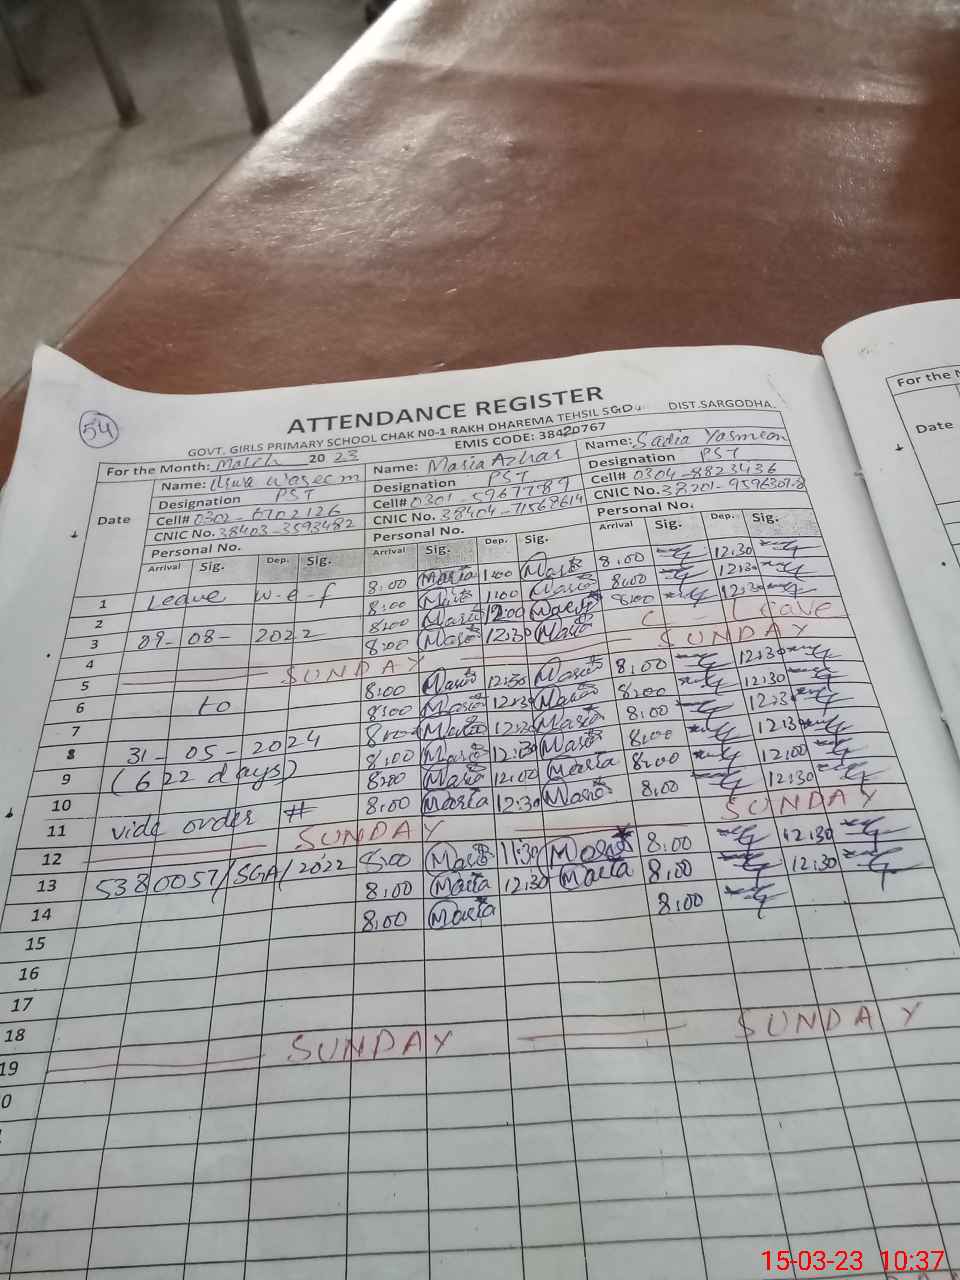 54
ATTENDANCE REGISTER
GOVT. GIRLS PRIMARY SCHOOL CHAK N0-1 RAKH DHAREMA TEHSIL SGD DIST.SARGODHA.
EMIS CODE: 38420767
For the Month: March 2023
Date
Name: Uswa Waseem
Designation PST
Cell# 0302-6702126
CNIC No. 38403-3593482
Personal No.
Name: Maria Azhar
Designation PST
Cell# 0301-5967789
CNIC No. 38404-71568614
Personal No.
Name: Sadia Yasmeen
Designation PST
Cell# 0304-8823436
CNIC No. 38201-9596307-8
Personal No.
Arrival Sig. Dep. Sig. Arrival Sig. Dep. Sig. Arrival Sig. Dep. Sig.
1 Leave w-e-f 8:00 Maria 1:00 Maria 8:00 12:30
2 8:00 Maria 1:00 Maria 8:00 12:30
3 09-08-2022 8:00 Maria 12:00 Maria 8:00 12:30
4 8:00 Maria 12:30 Maria C - Leave
5 SUNDAY SUNDAY
6 to 8:00 Maria 12:30 Maria 8:00 12:30
7 8:00 Maria 12:30 Maria 8:00 12:30
8 31-05-2024 8:00 Maria 12:30 Maria 8:00 12:30
9 (622 days) 8:00 Maria 12:30 Maria 8:00 12:30
10 8:00 Maria 12:00 Maria 8:00 12:00
11 vide order # 8:00 Maria 12:30 Maria 8:00 12:30
12 SUNDAY SUNDAY
13 5380057/SGA/2022 8:00 Maria 11:30 Maria 8:00 12:30
14 8:00 Maria 12:30 Maria 8:00 12:30
15 8:00 Maria 8:00
16
17
18
19 SUNDAY SUNDAY
0
For the M
Date
15-03-23 10:37